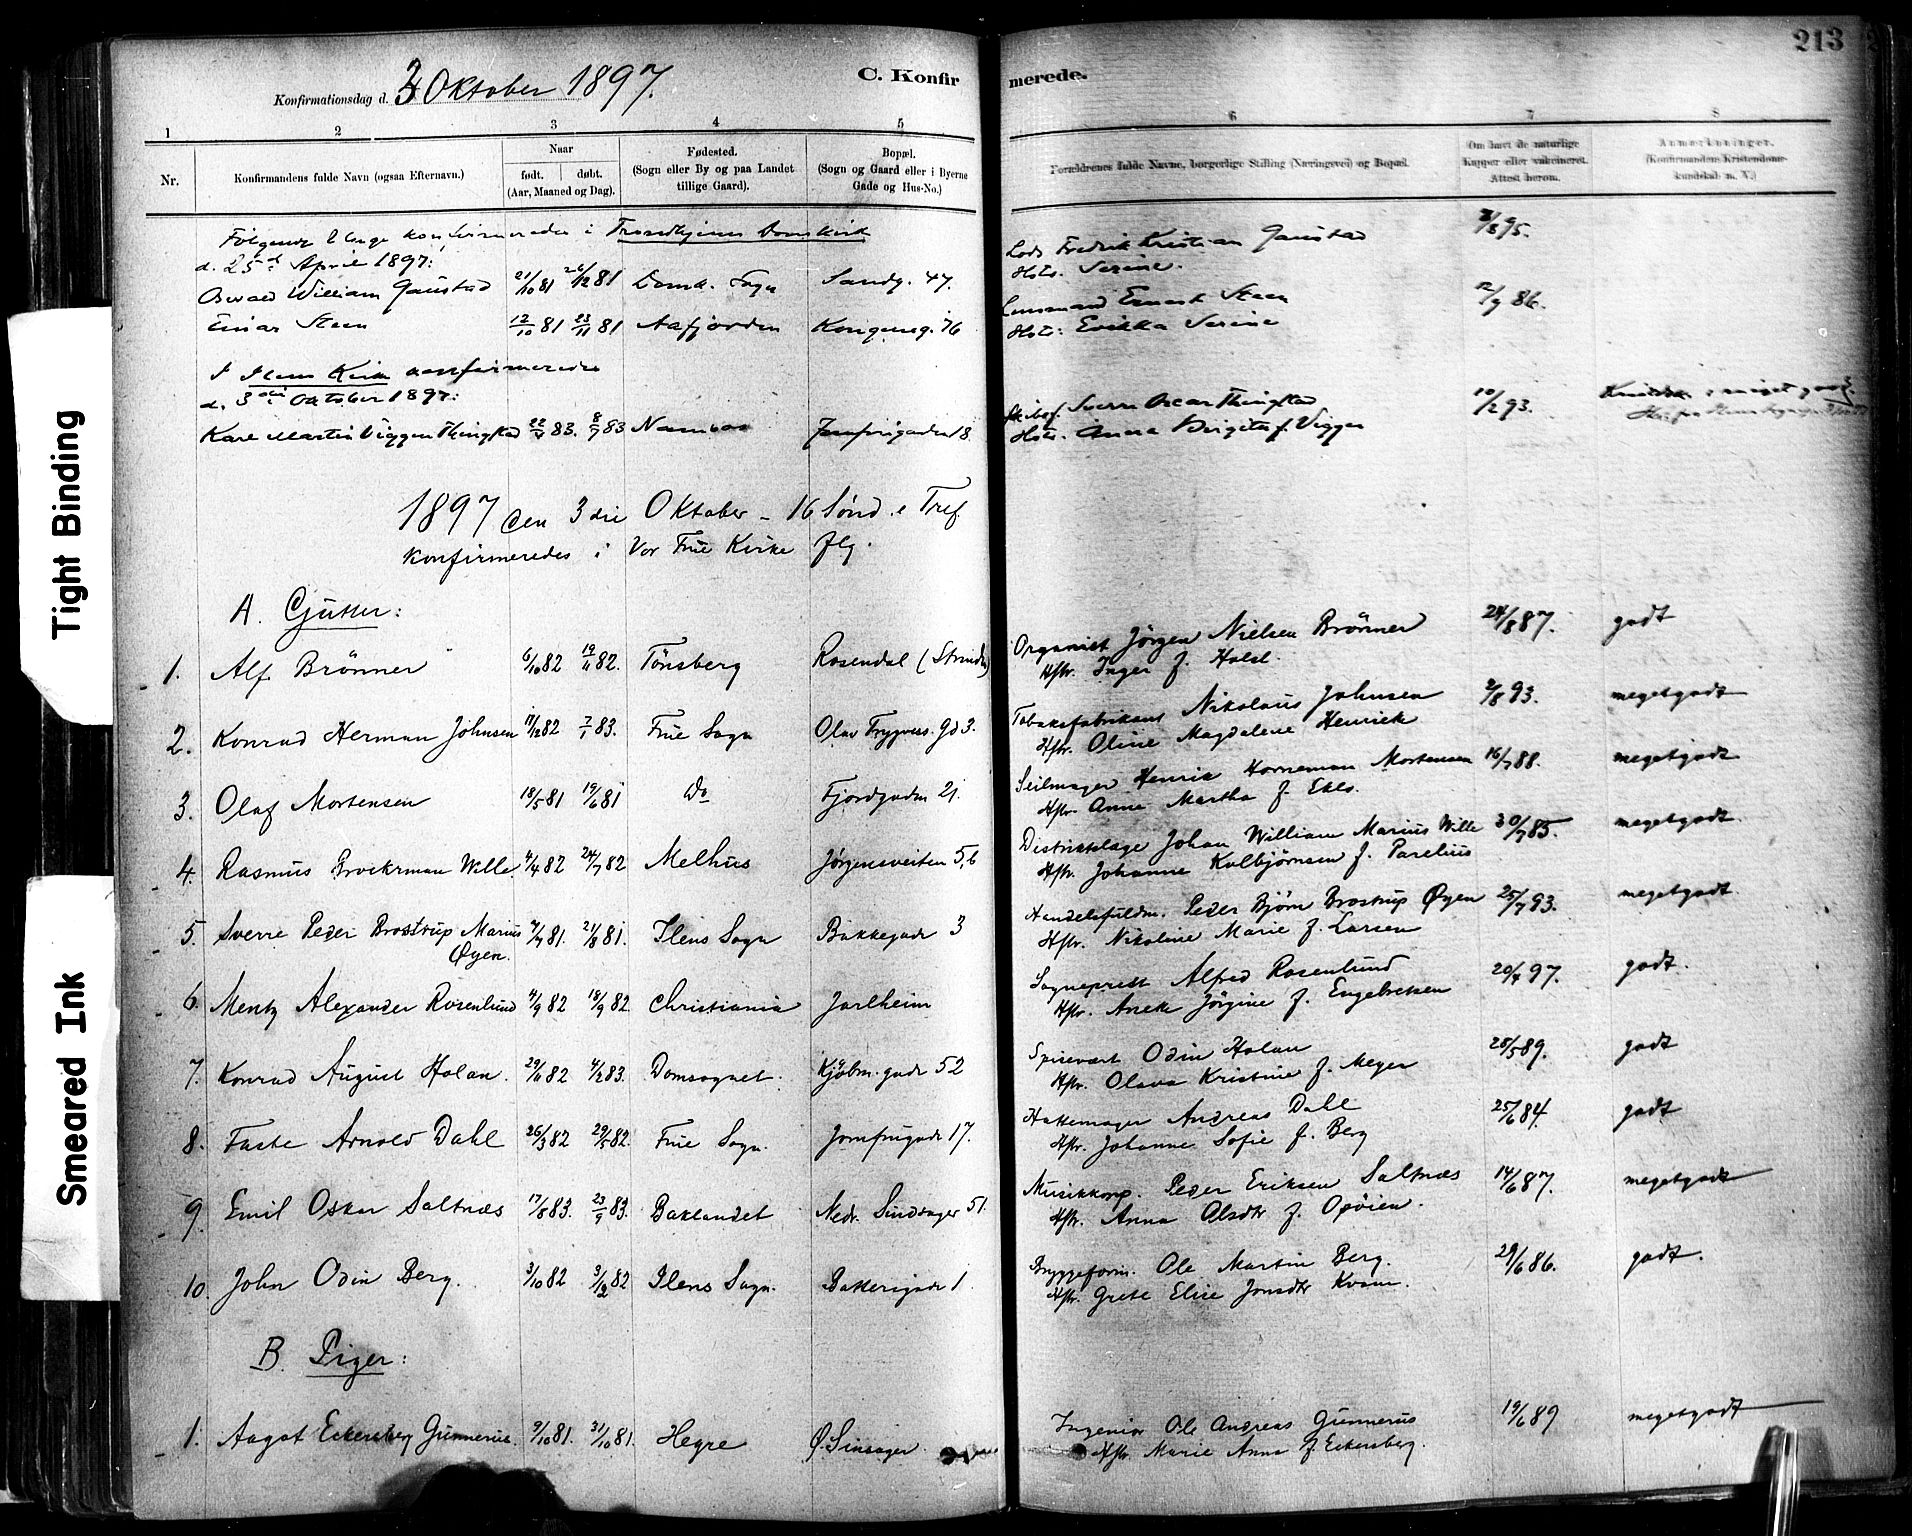 213
3 Oktober 1897.
Konfirmationsdag d.
C. Konfir
merede.
1 2 3 4 5 6 7 8
Nr.
Konfirmandens fulde Navn (ogsaa Efternavn.)
Naar
født. døbt.
(Aar, Maaned og Dag).
Fødested.
(Sogn eller By og paa Landet
tillige Gaard).
Bopæl.
(Sogn og Gaard eller i Byerne
Gade og Hus-No.)
Forældrenes fulde Navne, borgerlige Stilling (Næringsvei) og Bopæl.
Om havt de naturlige
Kopper eller vakcineret.
Attest herom.
Anmærkninger.
(Konfirmandens Kristendoms-
kundskab m. V.)
Følgende 2 Unge konfirmeredes i Trondhjems Domkirk
d. 25 April 1897:
Osvald William Gaustad 21/10 81 26/12 81 Domk. Sogn Sandg. 47. Lods Fredrik Kristian Gaustad 3/8 95.
Hst. Serine.
Einar Steen 12/10 81 23/11 81 Aafjorden Kongensg. 76 Lensmand Ernest Steen 12/9 86.
Hst: Erikka Serine
I Ilens Kirke konfirmeredes
d. 3die Oktober 1897:
Karl Martin Viggen Thingstad 22/4 83. 8/7 83 Namsos Jomfrugaden 18. Sverre Oscar Thingstad 10/2 93.
Hst. Anna Birgitte f. Viggen
1897 den 3die Oktober – 16 Sønd. e Tref.
konfirmeredes i Vor Frue Kirke flg.
A. Gutter:
1. Alf Brönner 6/10 82 19/11 82. Tönsberg Rosendal (Strinden) Organist Jörgen Nielsen Brönner 24/8 87. godt
Hstr. Inger f. Holst.
2. Konrad Herman Johnsen 11/12 82 7/1 83. Frue Sogn Olav Trygvess. gd 3. Tobaksfabrikant Nikolaus Johnsen 2/8 93. megetgodt
Hstr. Oline Magdalene Henriek
3. Olaf Mortensen 18/5 81 19/6 81 Do Fjordgaden 21. Seilmager Henrik Horneman Mortensen 16/7 88. megetgodt
Hstr. Anne Martha f. Ekls.
4. Rasmus Brockman Wille 4/4 82 24/7 82 Melhus Jørgensveiten 5,6 Distriktslæge Johan William Marius Wille 30/7 85. megetgodt.
Hstr. Johanne Kolbjörnsen f. Parelius
5. Sverre Peder Brostrup Marius 7/7 81. 21/8 81. Ilens Sogn Bakkegade 3 Handelsfuldm. Peder Bjørn Brostrup Øyen 25/7 93. megetgodt.
Øyen. Hstr. Nikoline Marie f. Larsen
6. Mentz Alexander Rosenlund 4/9 82 18/9 82. Christiania Jarlheim Sogneprest Alfred Rosenlund 20/4 97. godt.
Hstr. Jörgine f. Engebretsen
7. Konrad August Holan. 29/6 82 4/2 83. Domsognet. Kjøbm. gade 52 Spisevært Odin Holan 28/5 89. godt
Hstr. Olava Kristine f. Meyer
8. Faste Arnold Dahl 26/3 82 29/5 82. Frue Sogn. Jomfrugade 17. Hattemager Andreas Dahl 25/6 84. godt
Hstr. Johanne Sofie f. Berg
9. Emil Oskar Saltnæs 17/8 83. 23/9 83. Baklandet Nedr. Sindsager 51. Musikkorp. Peder Eriksen Saltnæs 14/6 87. megetgodt
Hstr. Anna Olsdtr f. Opöien.
10. John Odin Berg. 3/10 82 3/12 82 Ilens Sogn. Bakkerigade 1 Bryggeform. Ole Martin Berg. 29/6 86. godt.
Hstr. Grete Elise Jonsdtr Kvam.
B. Piger:
1. Aagot Eckersberg Gunnerus. 9/10 81. 31/10 81. Hegre Ø. Sinsager. Ingeniør Ole Andreas Gunnerus 19/6 89 megetgodt
Hstr. Marie Anna f. Eckersberg.
Tight Binding
Smeared Ink